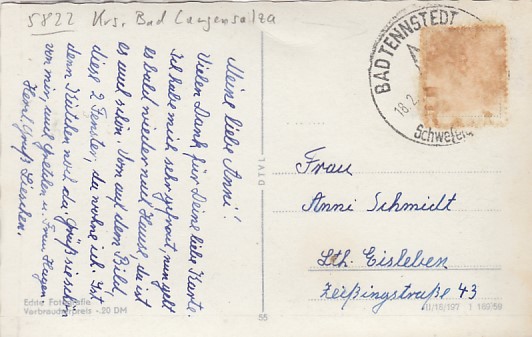 5822 Krs. Bad Langensalza
Meine liebe Anni!
Vielen Dank für Deine liebe Karte.
Ich habe mich sehr gefreut, nun geht
es bald wieder nach Hause, da ist
es auch schön. Vorn auf dem Bild,
diese 2 Fenster, da wohne ich. Ist
denn noch da. Grüß sie schön
von mir, auch Gretchen u. Frau
Herzl. Gruß Lieschen.
Echte Fotografie
Verbraucherpreis -.20 DM
D I V A L
55
BAD TENNSTEDT
18.2.
Schwefel
Frau
Anni Schmidt
Lth. Eisleben
Zeißingstraße 43
III/18/197 1 169/59